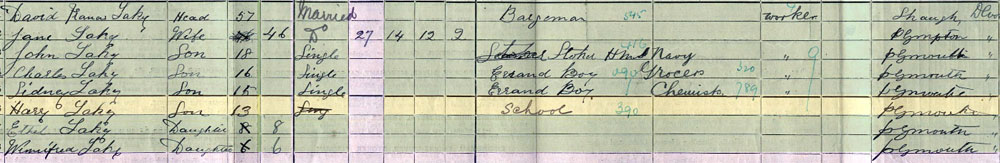 David Francis Laky Head 57 Married Bargeman 545 worker Shaugh, Devon
Jane Laky Wife 46 Do 27 14 12 2 Plympton "
John Laky Son 18 Single Stoker HMS Navy " 9 Plymouth "
Charles Laky Son 16 Single Errand Boy Grocers " Plymouth "
Sidney Laky Son 15 Single Errand Boy Chemists 789 " Plymouth "
Harry Laky Son 13 School 390 Plymouth "
Ethel Laky Daughter 8 8 Plymouth "
Winnifred Laky Daughter 6 6 Plymouth "